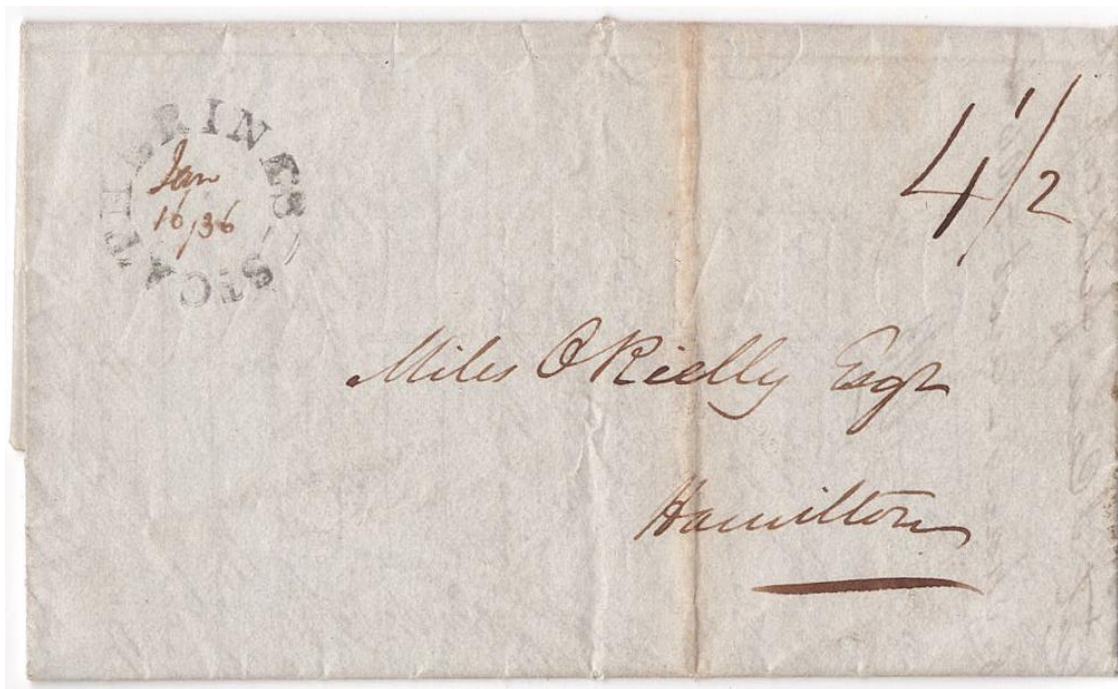 ST CATHERINES
Jan
16/36
4 1/2
Miles O Rielly Esqr
Hamilton